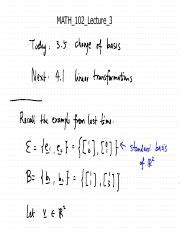 MATH_102_Lecture_3
Today: 3.5 change of basis
Next: 4.1 linear transformations
Recall the example from last time:
E = {e₁, e₂} = {[1 0], [0 1]} ← standard basis
of ℝ²
B = {b₁, b₂} = {[1
Let v ∈ ℝ²